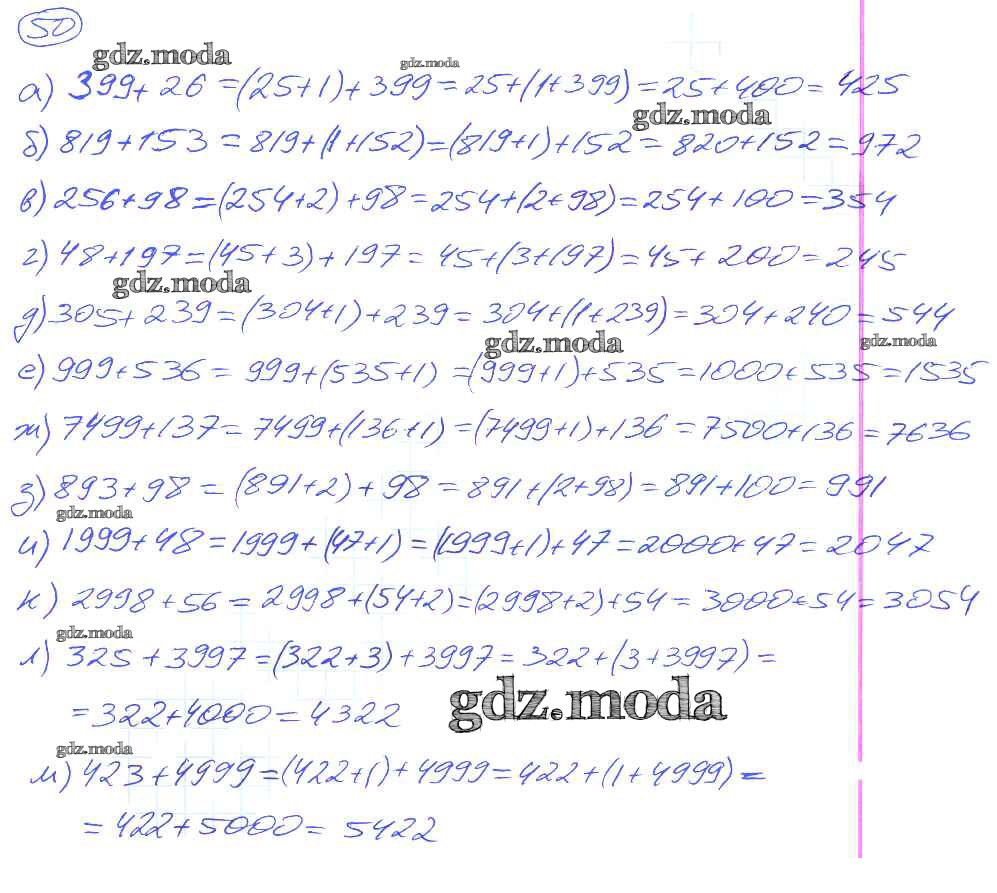 50
gdz.moda
gdz.moda
а) 399+ 26 =(25+1)+399=25+(1+399)=25+400=425
gdz.moda
б) 819+153 = 819+(1+152)=(819+1)+152= 820+152=972
в) 256+98=(254+2)+98=254+(2+98)=254+100=354
г) 48+197=(45+3)+197=45+(3+197)=45+200=245
gdz.moda
д) 305+239=(304+1)+239=304+(1+239)=304+240=544
gdz.moda
gdz.moda
е) 999+536= 999+(535+1) =(999+1)+535=1000+535=1535
ж) 7499+137=7499+(136+1)=(7499+1)+136=7500+136=7636
з) 893+98 = (891+2)+98=891+(2+98)=891+100=991
gdz.moda
и) 1999+48=1999+(47+1)=(1999+1)+47=2000+47=2047
к) 2998+56= 2998+(54+2)=(2998+2)+54=3000+54=3054
gdz.moda
л) 325+3997=(322+3)+3997=322+(3+3997)=
=322+4000=4322
gdz.moda
gdz.moda
м) 423+4999=(422+1)+4999=422+(1+4999)=
=422+5000= 5422